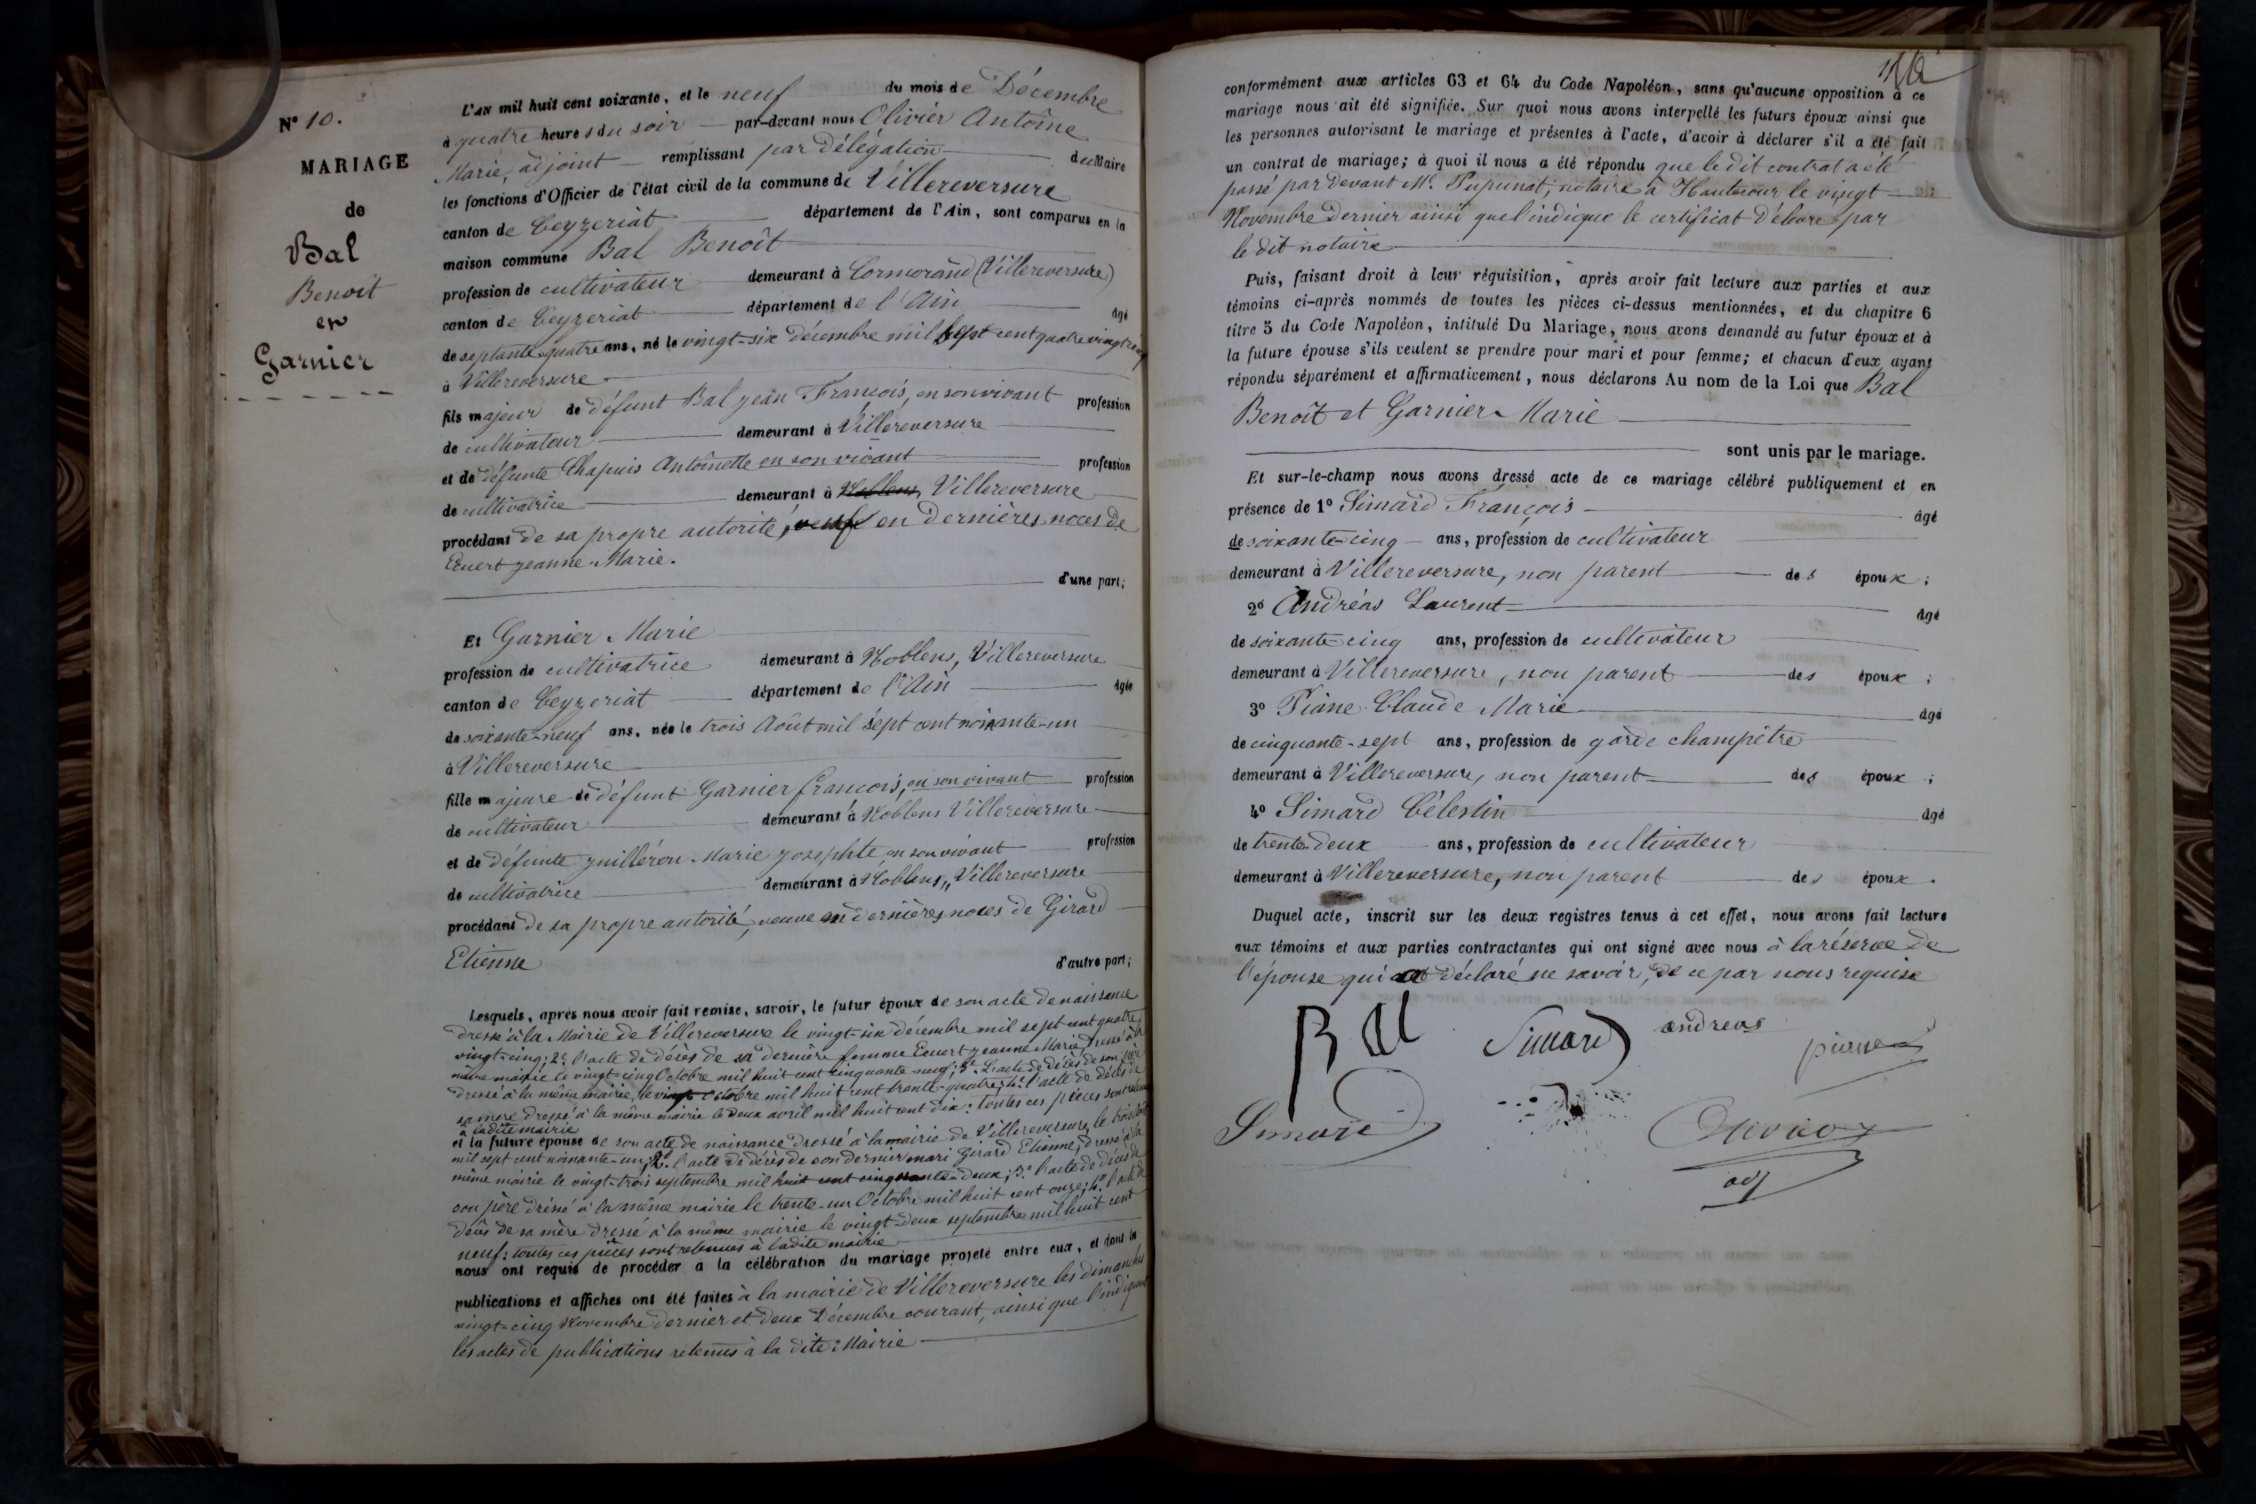 N° 10.
MARIAGE
de
Bal
Benoit
et
Garnier
L'an mil huit cent soixante, et le neuf du mois de Décembre
à quatre heures du soir par-devant nous Olivier Antoine
Marie, adjoint remplissant par délégation du Maire
les fonctions d'Officier de l'état civil de la commune de Villereversure
canton de Ceyzeriat département de l'Ain, sont comparus en la
maison commune Bal Benoît
profession de cultivateur demeurant à Cormorand (Villereversure)
canton de Ceyzeriat département de l'Ain âgé
de septante-quatre ans, né le vingt-six décembre mil sept cent quatre vingt cinq
à Villereversure
fils majeur de défunt Bal jean François, en son vivant profession
de cultivateur demeurant à Villereversure
et de défunte Chapuis Antoinette en son vivant profession
de cultivatrice demeurant à Noblens Villereversure
procédant de sa propre autorité, veuf en dernières noces de
Ecuert jeanne-Marie.
d'une part;
Et Garnier Marie
profession de cultivatrice demeurant à Noblens, Villereversure
canton de Ceyzeriat département de l'Ain âgée
de soixante-neuf ans, née le trois Août mil sept cent nonante-un
à Villereversure
fille majeure de défunt Garnier françois, en son vivant profession
de cultivateur demeurant à Noblens Villereversure
et de défunte guilléron Marie josephte en son vivant profession
de cultivatrice demeurant à Noblens, Villereversure
procédant de sa propre autorité, veuve en dernières noces de Girard
Etienne d'autre part;
Lesquels, après nous avoir fait remise, savoir, le futur époux de son acte de naissance
dressé à la Mairie de Villereversure le vingt-six décembre mil sept cent quatre
vingt-cinq; 2° l'acte de décès de sa dernière femme Ecuert jeanne Marie, dressé à la
même mairie le vingt-cinq Octobre mil huit cent cinquante-neuf; 3° L'acte de décès de son père
dressé à la même mairie, le vingt octobre mil huit cent trente-quatre; 4° l'acte de décès de
sa mère dressé à la même mairie le deux avril mil huit cent dix: toutes ces pièces sont retenues
à ladite mairie
et la future épouse de son acte de naissance dressé à la mairie de Villereversure, le trois Août
mil sept cent nonante-un; 2° l'acte de décès de son dernier mari Girard Etienne, dressé à la
même mairie le vingt-trois septembre mil huit cent cinquante-deux; 3° l'acte de décès de
son père dressé à la même mairie le trente-un Octobre mil huit cent onze; 4° l'acte de
décès de sa mère dressé à la même mairie le vingt-deux septembre mil huit cent
neuf: toutes ces pièces sont retenues à ladite mairie
nous ont requis de procéder a la célébration du mariage projeté entre eux, et dont les
publications et affiches ont été faites à la mairie de Villereversure les dimanches
vingt-cinq Novembre dernier et deux Décembre courant, ainsi que l'indiquent
les actes de publications retenus à la dite Mairie
conformément aux articles 63 et 64 du Code Napoléon, sans qu'aucune opposition à ce
mariage nous ait été signifiée. Sur quoi nous avons interpellé les futurs époux ainsi que
les personnes autorisant le mariage et présentes à l'acte, d'avoir à déclarer s'il a été fait
un contrat de mariage; à quoi il nous a été répondu que le dit contrat a été
passé par devant Me. Pupunat, notaire à Hautecour le vingt
Novembre dernier ainsi que l'indique le certificat délivré par
le dit notaire
Puis, faisant droit à leur réquisition, après avoir fait lecture aux parties et aux
témoins ci-après nommés de toutes les pièces ci-dessus mentionnées, et du chapitre 6
titre 5 du Code Napoléon, intitulé Du Mariage, nous avons demandé au futur époux et à
la future épouse s'ils veulent se prendre pour mari et pour femme; et chacun d'eux ayant
répondu séparément et affirmativement, nous déclarons Au nom de la Loi que Bal
Benoît et Garnier Marie
sont unis par le mariage.
Et sur-le-champ nous avons dressé acte de ce mariage célébré publiquement et en
présence de 1° Simard François âgé
de soixante-cinq ans, profession de cultivateur
demeurant à Villereversure, non parent des époux;
2° Andréas Laurent âgé
de soixante-cinq ans, profession de cultivateur
demeurant à Villereversure, non parent des époux;
3° Piane Claude Marie âgé
de cinquante-sept ans, profession de garde champêtre
demeurant à Villereversure, non parent des époux;
4° Simard Célestin âgé
de trente-deux ans, profession de cultivateur
demeurant à Villereversure, non parent des époux.
Duquel acte, inscrit sur les deux registres tenus à cet effet, nous avons fait lecture
aux témoins et aux parties contractantes qui ont signé avec nous à la réserve de
l'épouse qui a déclaré ne savoir, de ce par nous requise
Bal Simard andreas piane
Simard Olivier
adj